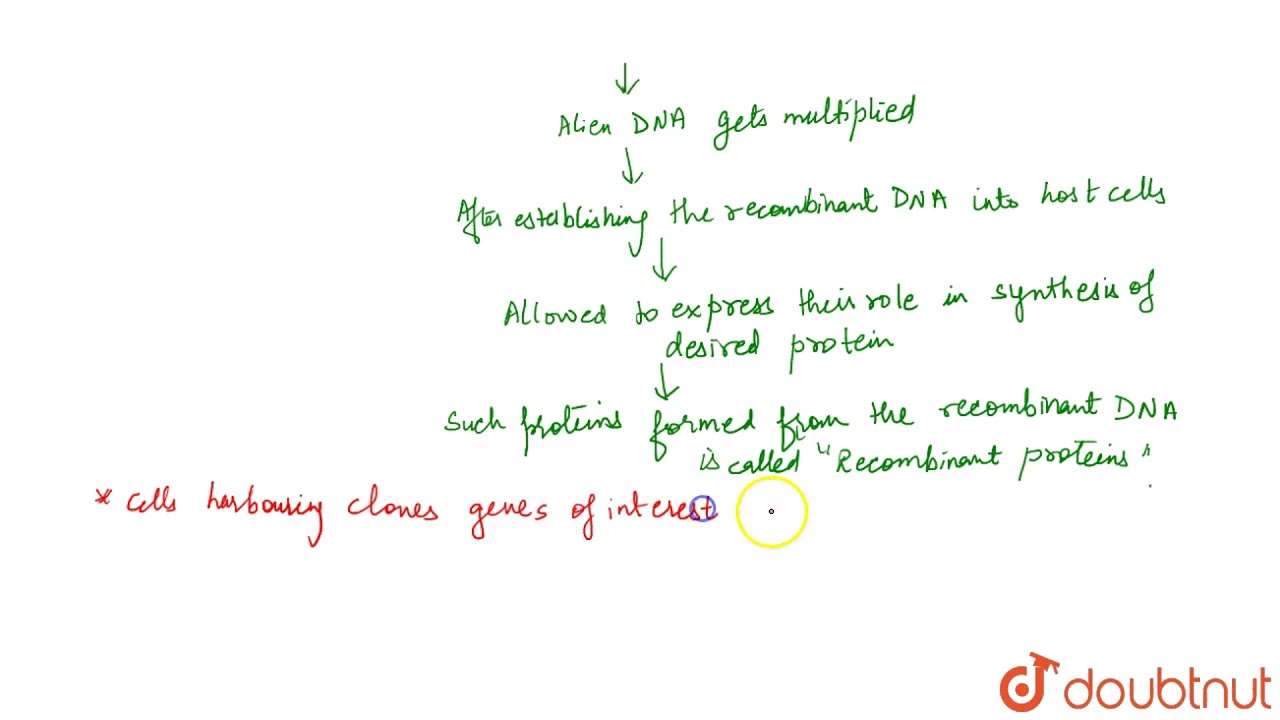 Alien DNA gets multiplied
After establishing the recombinant DNA into host cells
Allowed to express their role in synthesis of
desired protein
Such proteins formed from the recombinant DNA
is called "Recombinant proteins"
* Cells harbouring clones genes of interest
doubtnut